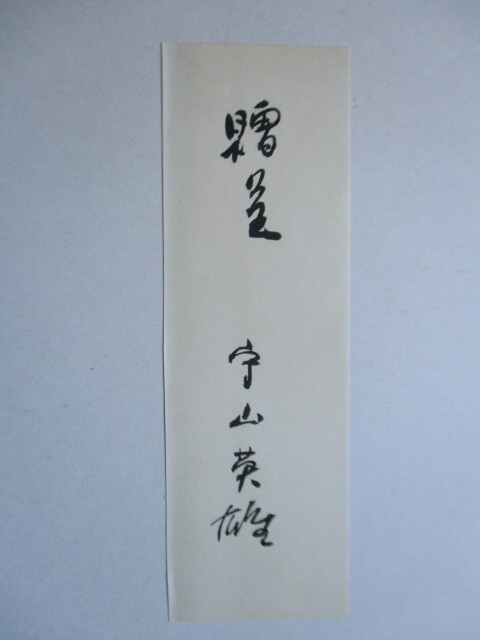 贈呈
守山英雄